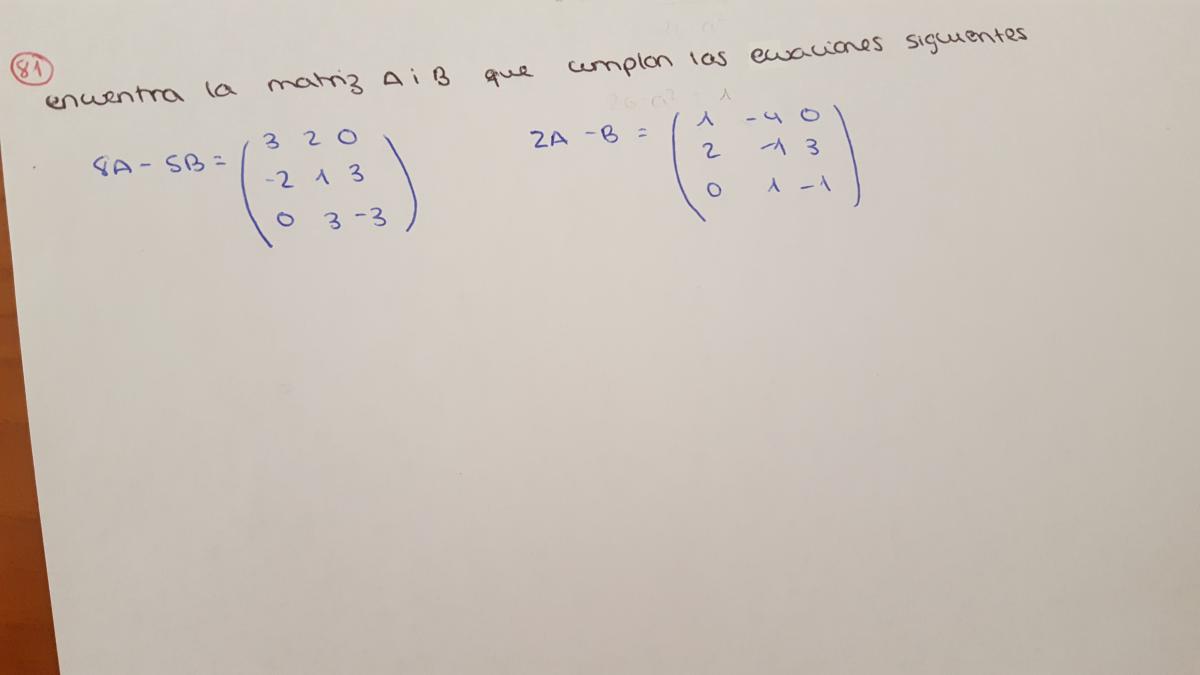 81
encuentra la matriz A i B que cumplan las ecuaciones siguientes
8A - 5B = ( 3 2 0 2A - B = ( 1 -4 0
-2 1 3 2 -1 3
0 3 -3 ) 0 1 -1 )